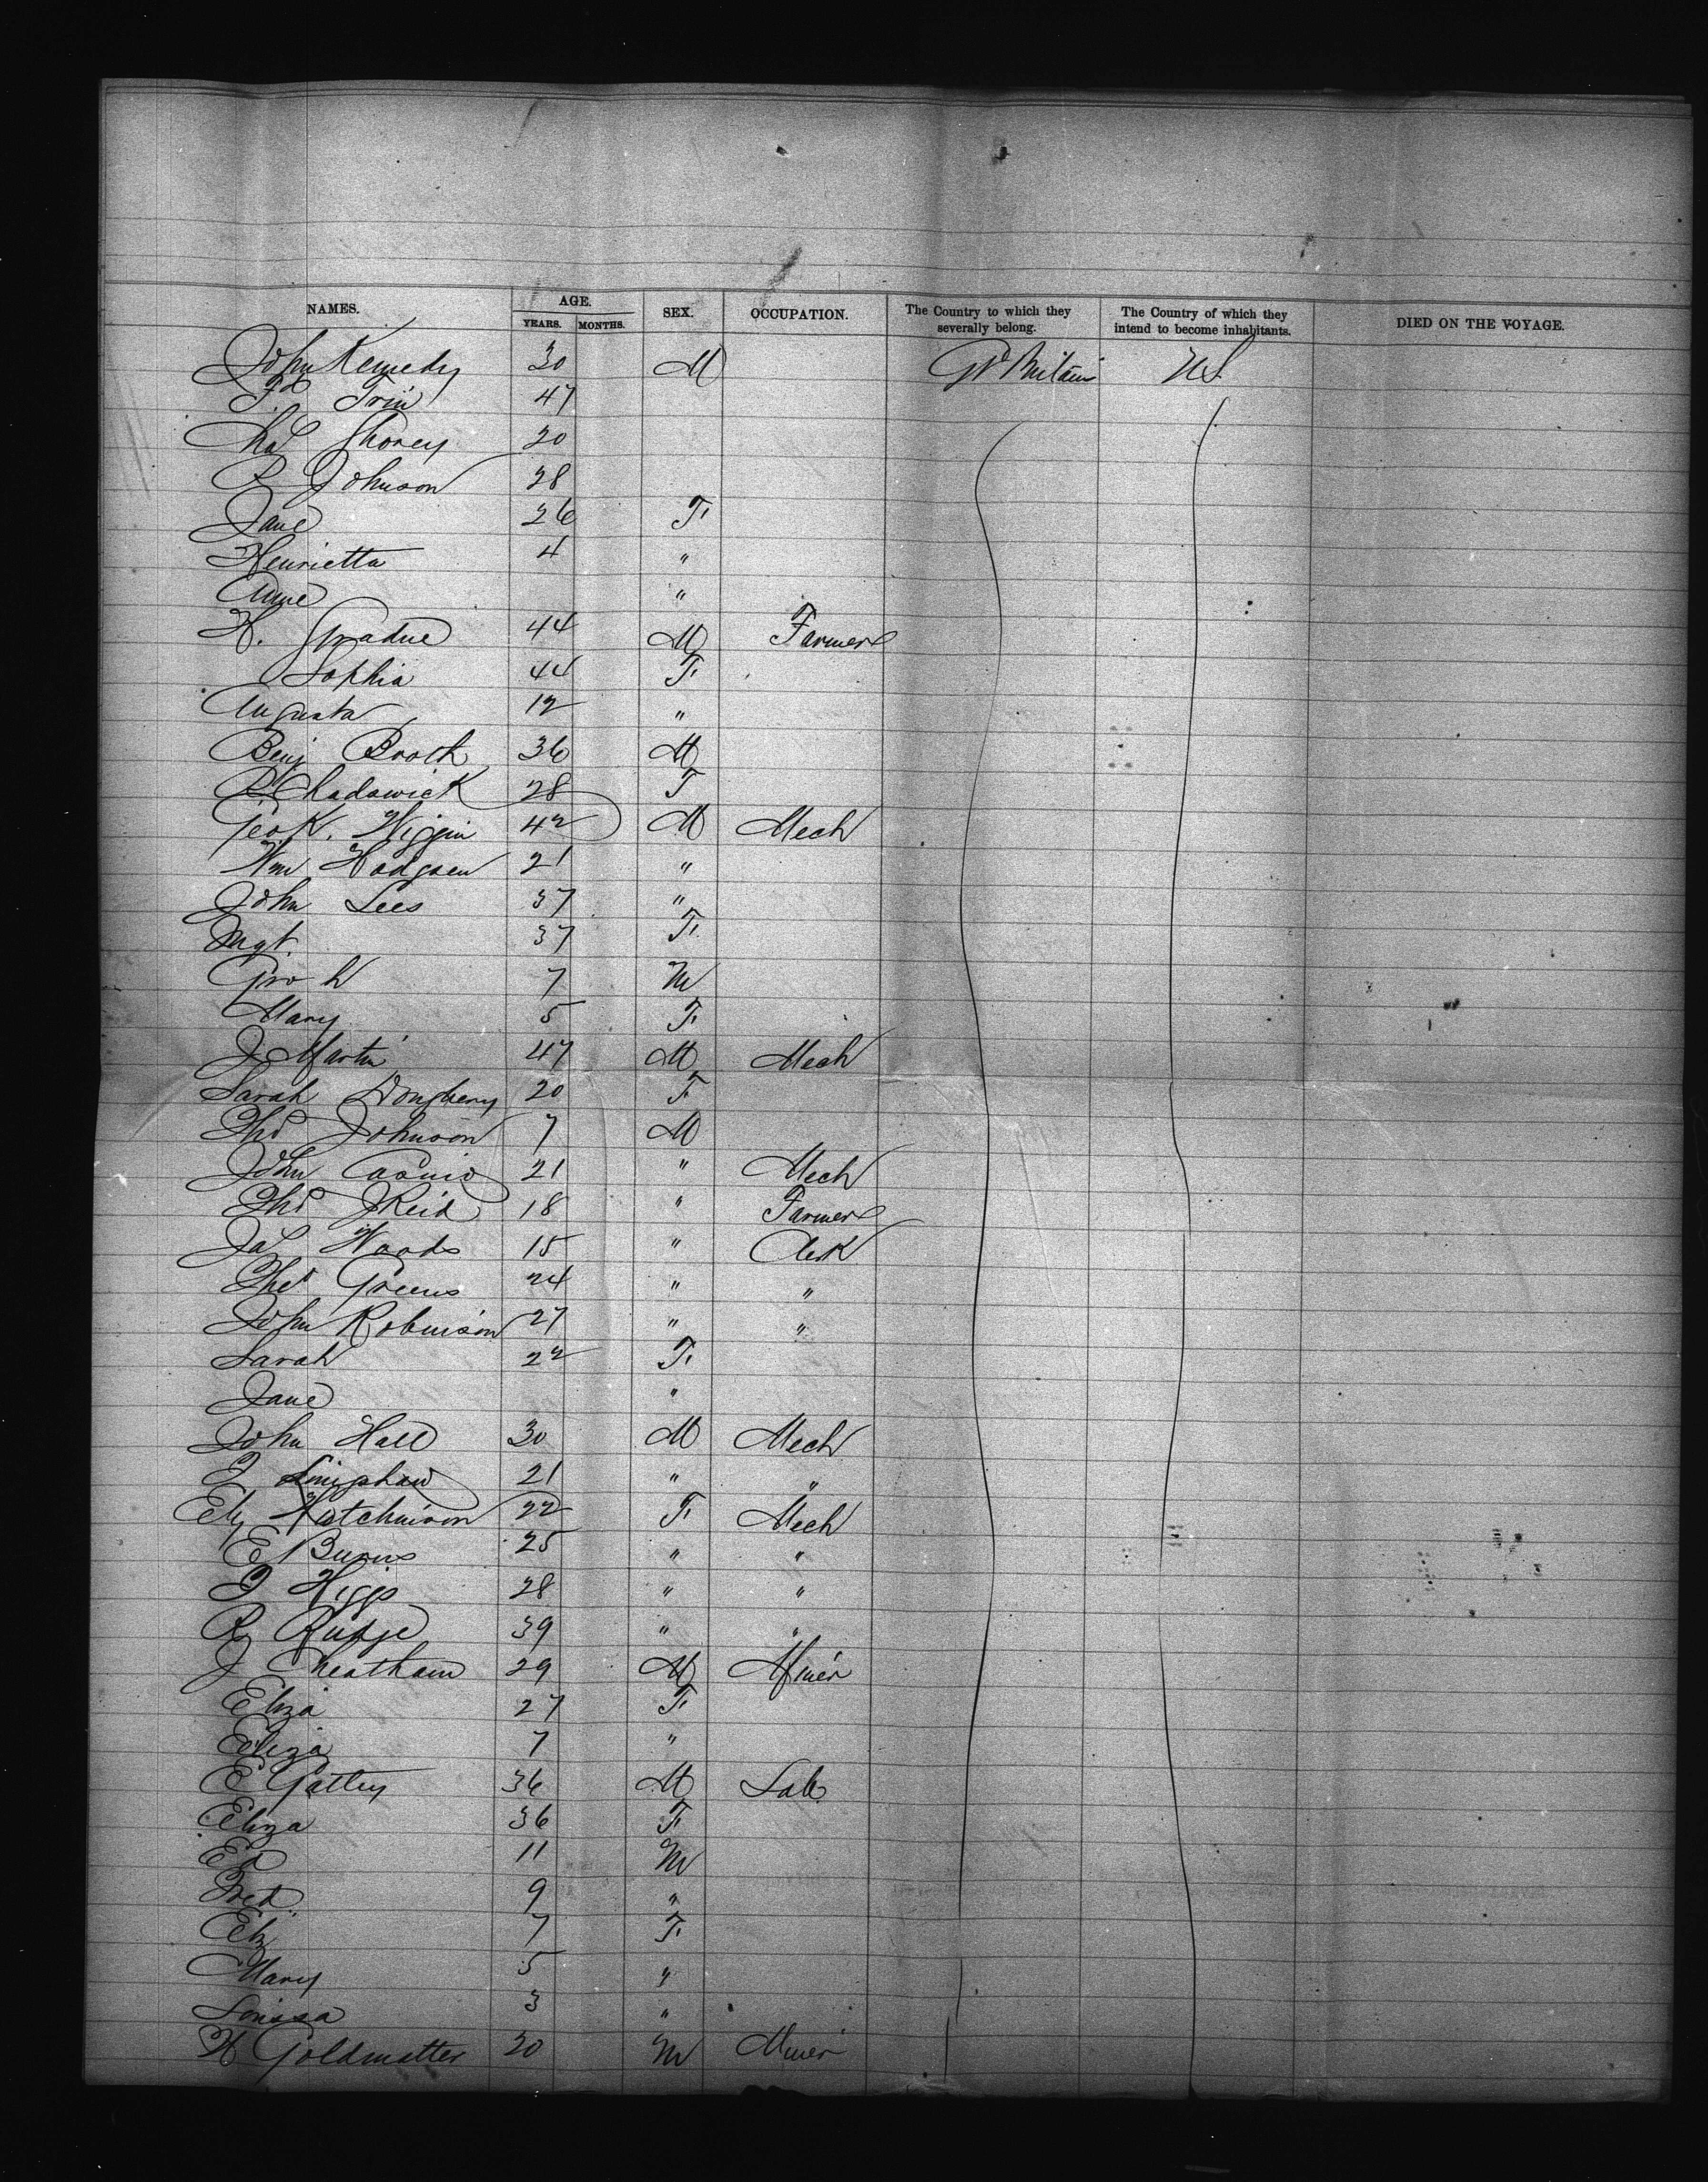 NAMES. AGE. SEX. OCCUPATION. The Country to which they severally belong. The Country of which they intend to become inhabitants. DIED ON THE VOYAGE.
YEARS. MONTHS.
John Kennedy 30 M Gt Britain US
47
Chas Shorey 20
P Johnson 28
Jane 26 F
Henrietta 4 "
Anne "
H. Gradue 44 M Farmer
Sophia 44 F
Augusta 12 "
Benj Booth 36 M
R Chadowick 28 F
Geo K. Wiggin 42 M Mech
Wm Hodgsen 21 "
John Lees 37 "
Mgt. 37 F
Geo h 7 M
Mary 5 F
J Martin 47 M Mech
Sarah 20 F
Ths Johnson 7 M
John 21 " Mech
Ths J Reid 18 " Farmer
Jas Woods 15 " Clerk
Thos Greens 24 " "
John Robinson 27 " "
Sarah 22 F
Jane "
John Hall 30 M Mech
Lingshaw 21 " "
Elz Hutchinson 22 F Mech
E Burns 25 " "
Higgs 28 " "
R Rudge 39 " "
J Cheatham 29 M Miner
Eliza 27 F
Eliza 7 "
E Gatley 36 M Lab
Eliza 36 F
Ed 11 M
Fred. 9 "
Elz 7 F
Mary 5 "
Louisa 3 "
H Goldmatter 30 M Miner